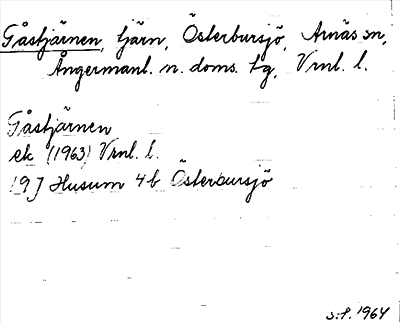 Gåstjärnen, tjärn, Österbursjö, Arnäs sn,
Ångermanl. n. doms. tg, Vrnl. l.
Gåstjärnen
ek (1963) Vrnl. l.
19 J Husum 4b Österbursjö
1964